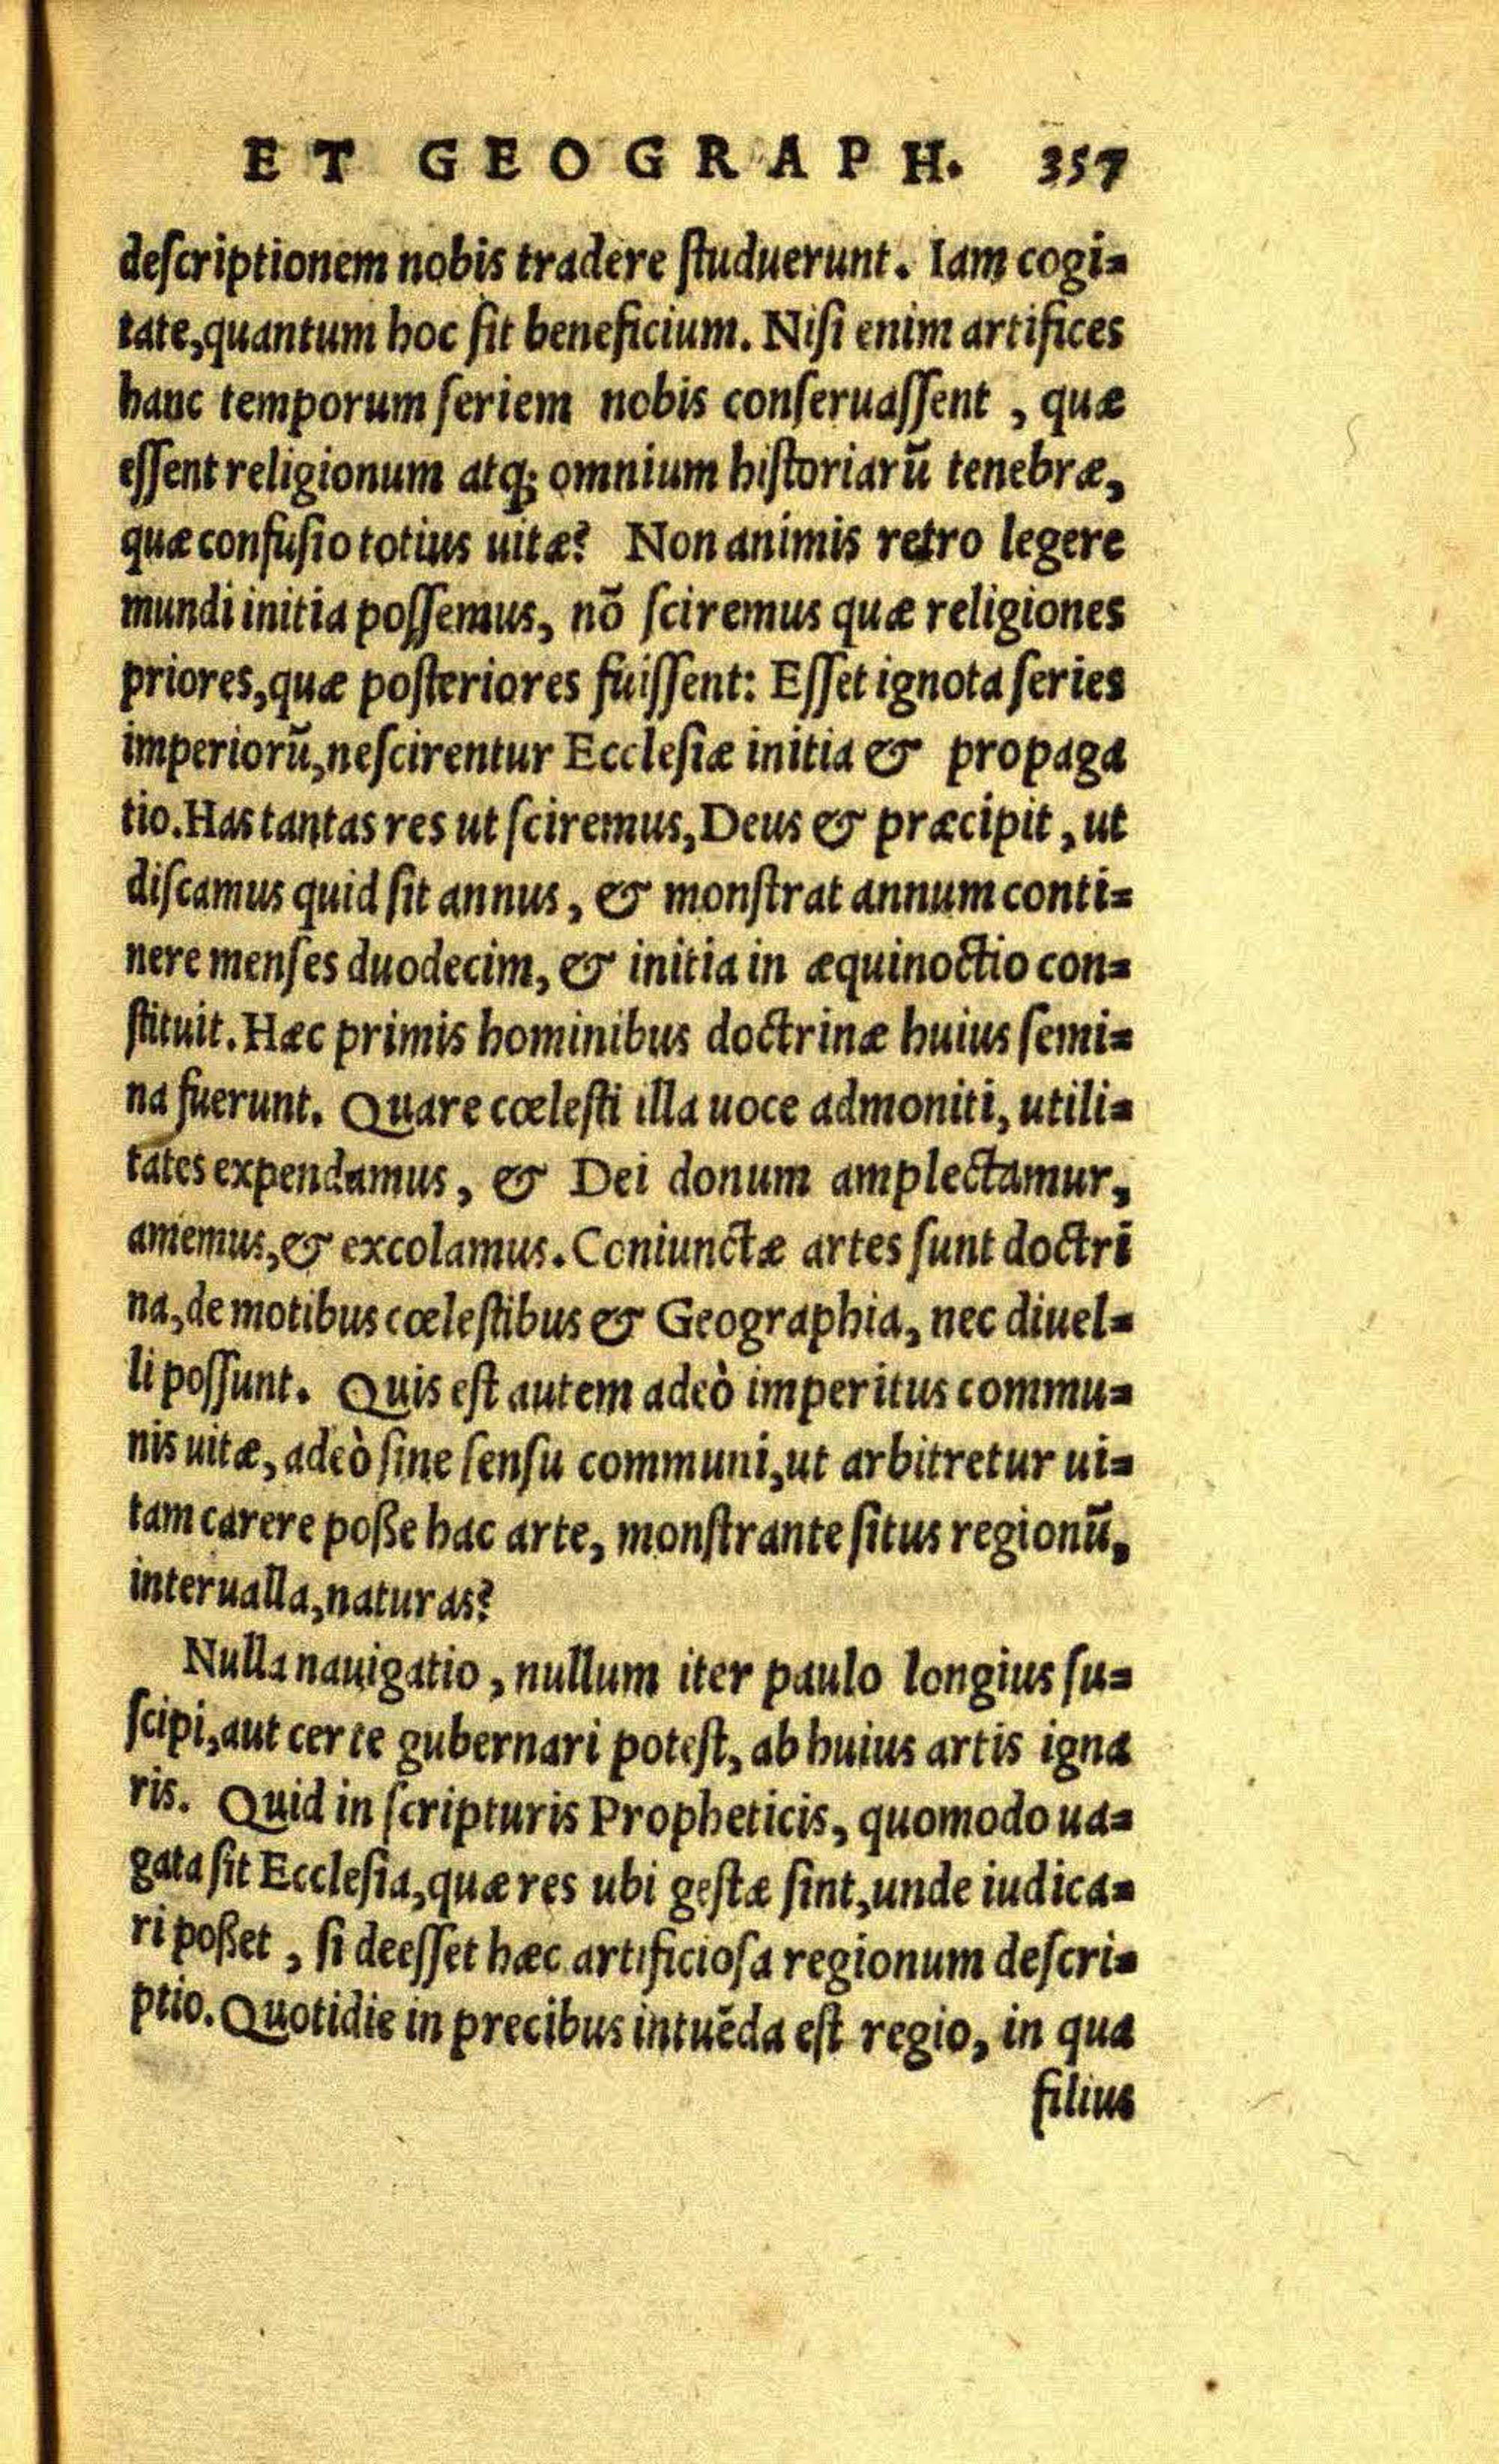 ET GEOGRAPH. 357
deſcriptionem nobis tradere ſtuduerunt. Iam cogi⸗
tate,quantum hoc ſit beneficium. Niſi enim artifices
hanc temporum ſeriem nobis conſeruaſſent , quæ
eſſent religionum atq; omnium hiſtoriarũ tenebræ,
quæ confuſio totius uitæ? Non animis retro legere
mundi initia poſſemus, nõ ſciremus quæ religiones
priores,quæ poſteriores fuiſſent: Eſſet ignota ſeries
imperiorũ,neſcirentur Eccleſiæ initia & propaga
tio.Has tantas res ut ſciremus,Deus & præcipit , ut
diſcamus quid ſit annus , & monſtrat annum conti⸗
nere menſes duodecim, & initia in æquinoctio con⸗
ſtituit. Hæc primis hominibus doctrinæ huius ſemi⸗
na fuerunt. Quare cœleſti illa uoce admoniti, utili⸗
tates expendamus , & Dei donum amplectamur,
amemus,& excolamus. Coniunctæ artes ſunt doctri
na,de motibus cœleſtibus & Geographia, nec diuel⸗
li poſſunt. Quis eſt autem adeò imperitus commu⸗
nis uitæ, adeò ſine ſenſu communi,ut arbitretur ui⸗
tam carere poße hac arte, monſtrante ſitus regionũ,
interualla,naturas?
Nulla nauigatio , nullum iter paulo longius ſu⸗
ſcipi,aut certe gubernari poteſt, ab huius artis igna
ris. Quid in ſcripturis Propheticis, quomodo ua⸗
gata ſit Eccleſia,quæ res ubi geſtæ ſint,unde iudica⸗
ri poßet , ſi deeſſet hæc artificioſa regionum deſcri⸗
ptio. Quotidie in precibus intuẽda eſt regio, in qua
filius